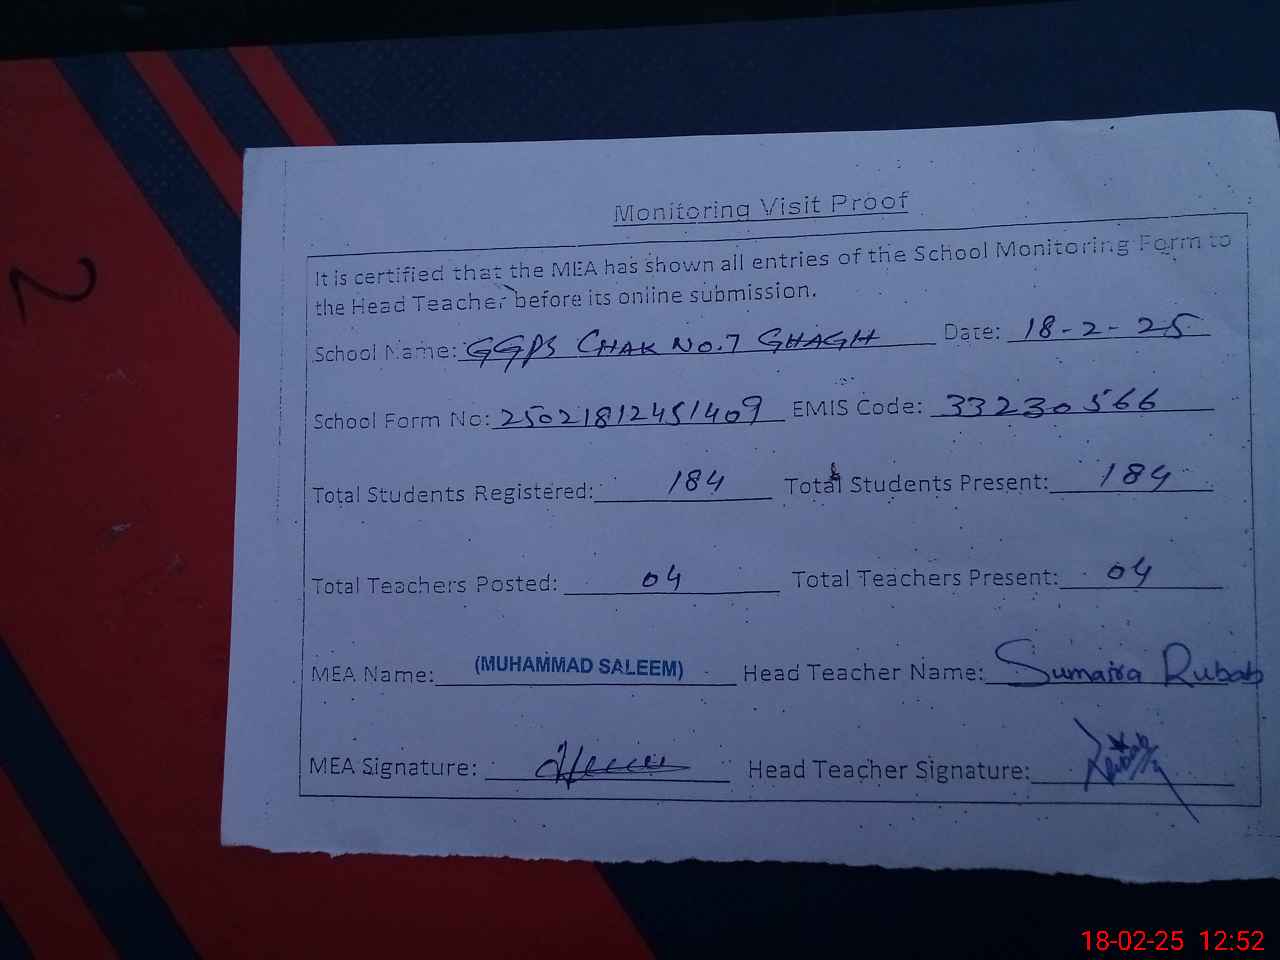 Monitoring Visit Proof
It is certified that the MEA has shown all entries of the School Monitoring Form to
the Head Teacher before its online submission.
School Name: GGPS CHAK NO.7 GHAGH Date: 18-2-25
School Form No: 25021812451409 EMIS Code: 33230566
Total Students Registered: 184 Total Students Present: 184
Total Teachers Posted: 04 Total Teachers Present: 04
MEA Name: (MUHAMMAD SALEEM) Head Teacher Name: Sumaira Rubab
MEA Signature: Head Teacher Signature:
2
18-02-25 12:52